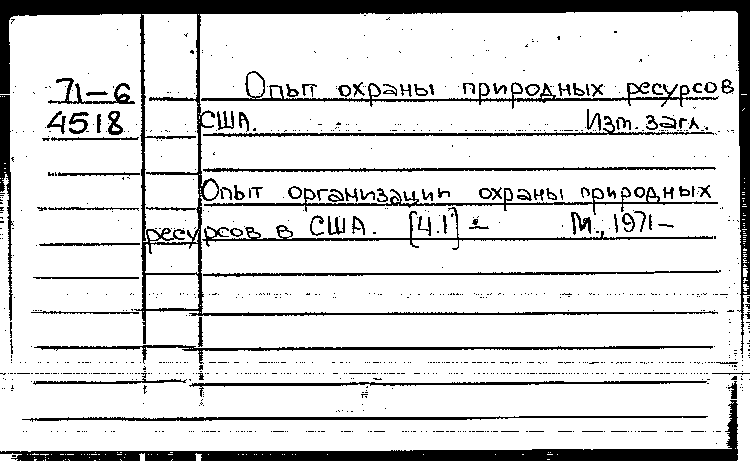 71-6 Опыт охраны природных ресурсов
4518 США. Изм. загл.
Опыт организации охраны природных
ресурсов в США. [Ч.1] - М., 1971-